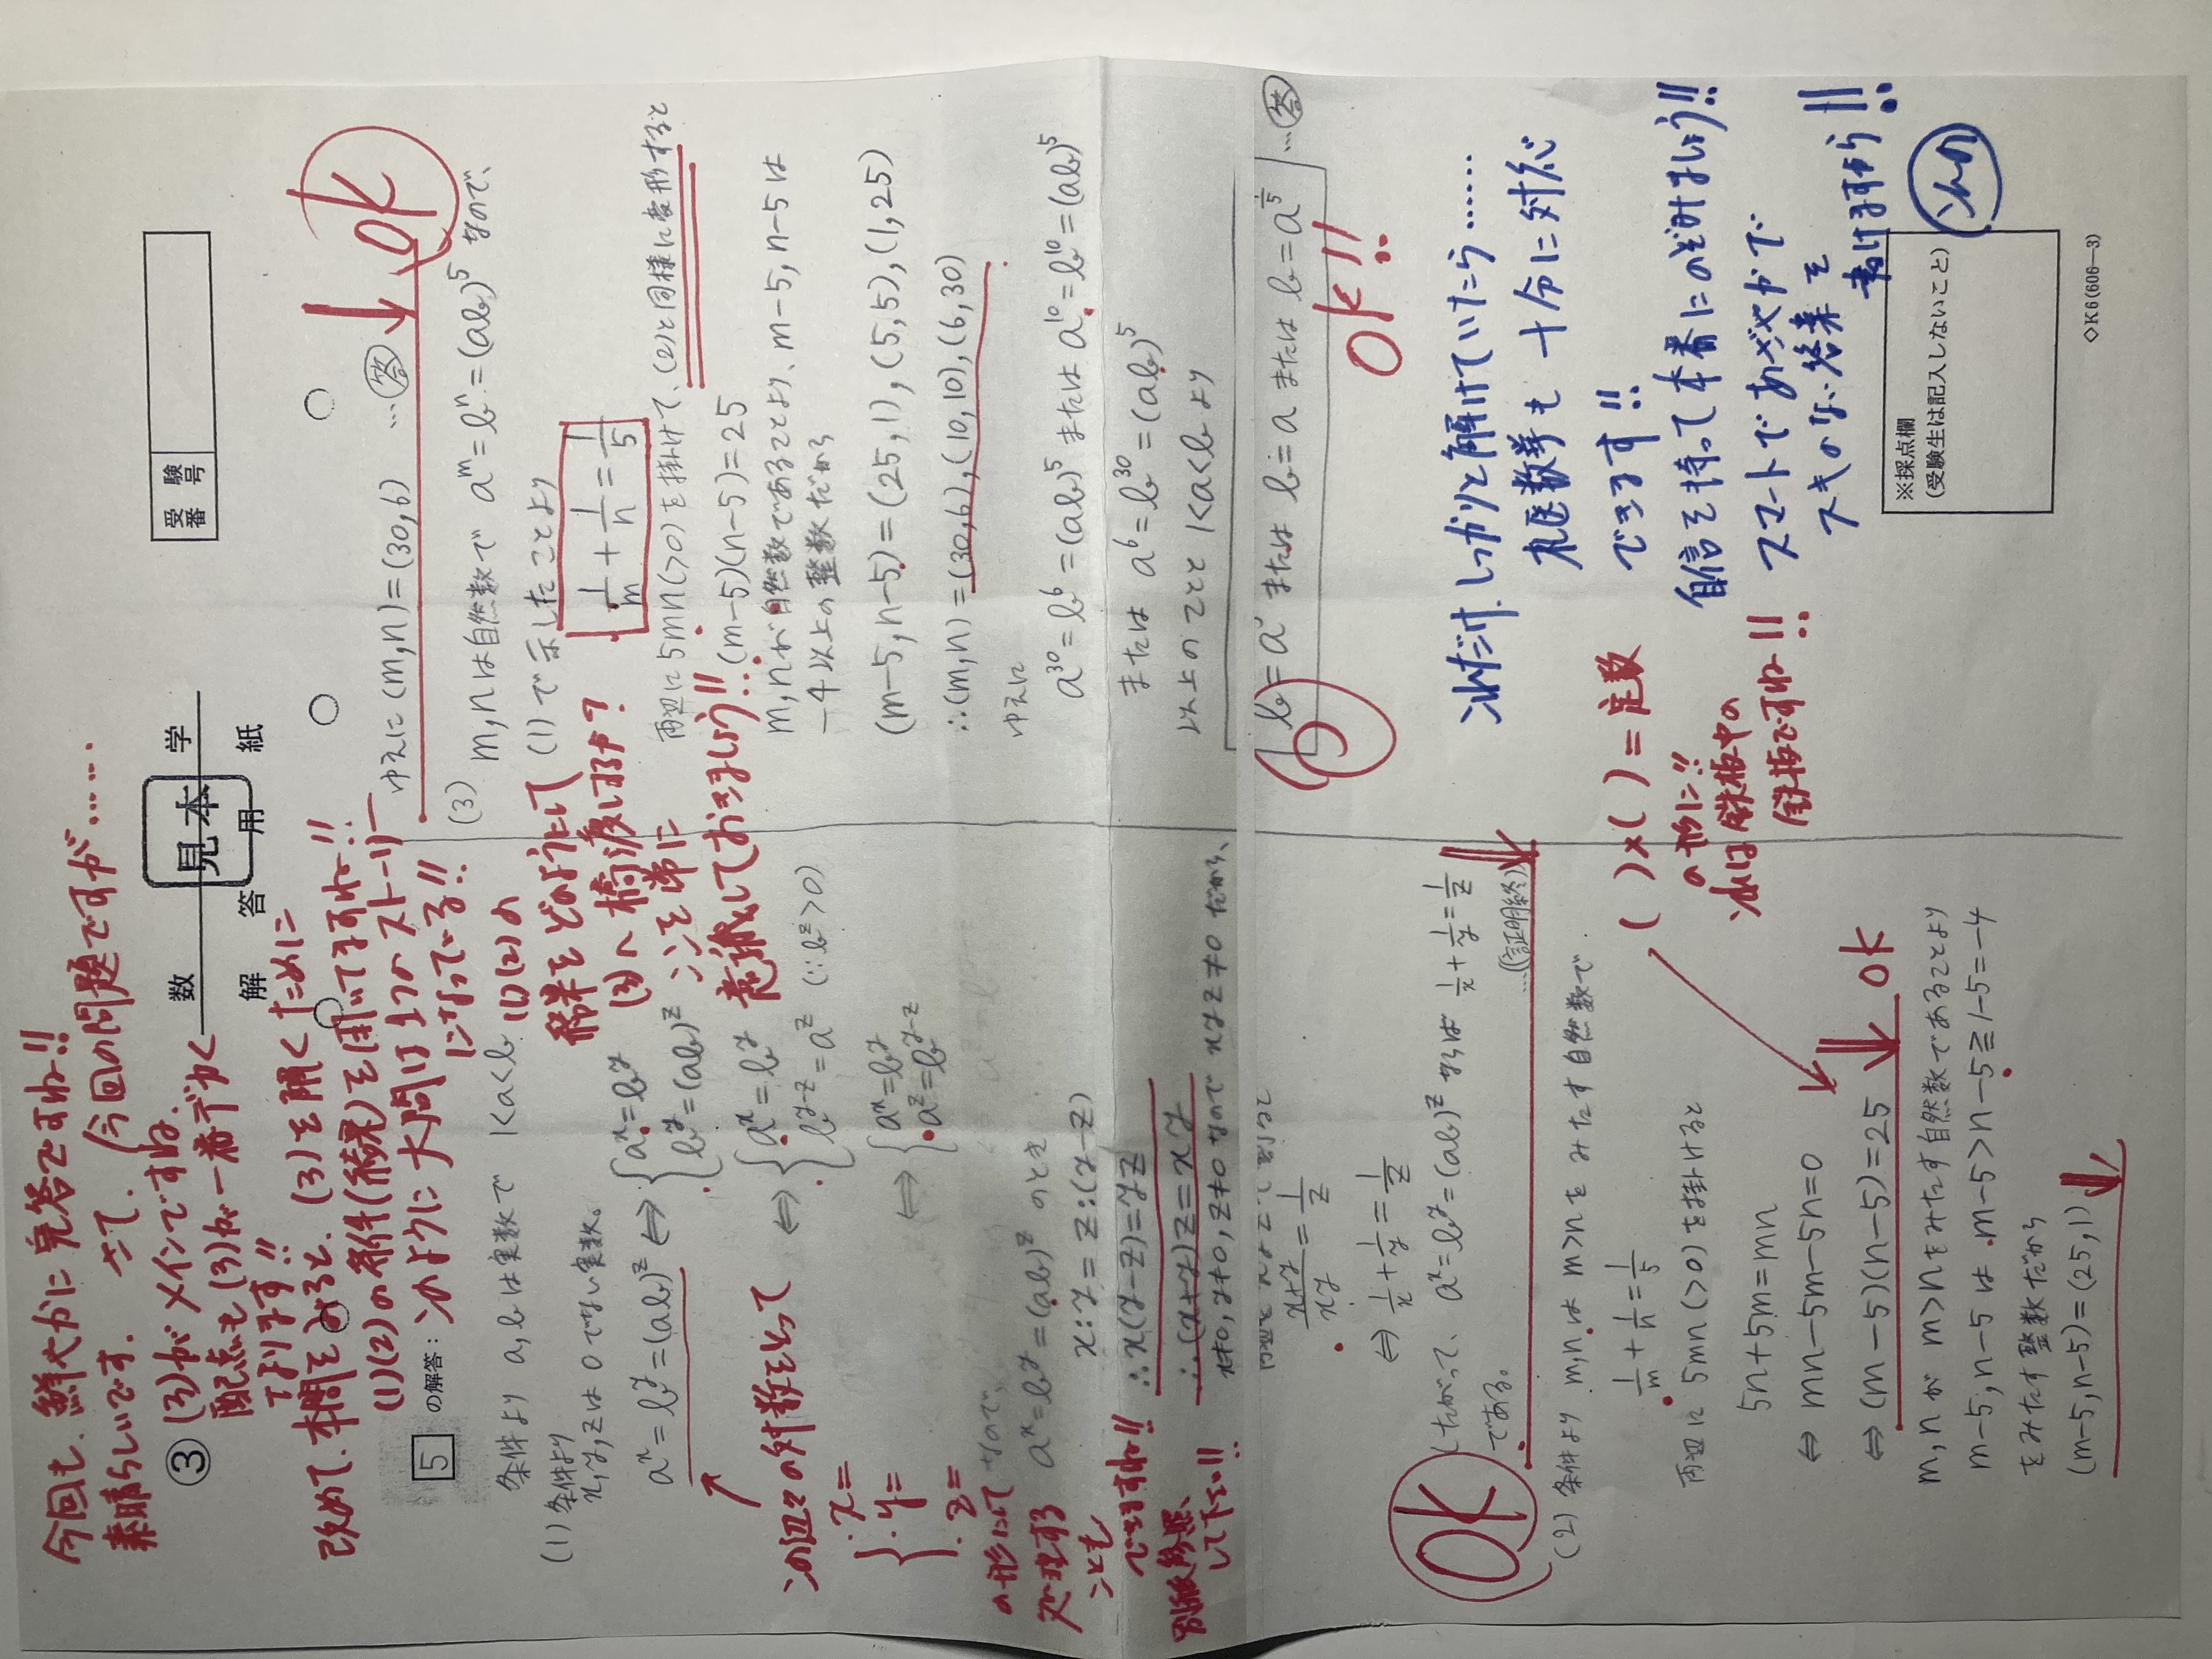 今回も、鮮やかに完答ですね!!
素晴らしいです。さて、(今回の問題ですが……
③ (3)がメインですね。
配点も(3)が一番デカく
なります!!
改めて、本問をみると、(3)を解くために
(1)(2)の条件(結果)を用いてますね!!
このように大問は1つのストーリー
になってでる!!
数 学
見本
解 答 用 紙
受験番号
5 の解答:
条件より a, bは実数で 1<a<b
(1) 条件より
x, y, zは0でない実数。
a^x=b^y=(ab)^z ⇔ {a^x=b^y
b^y=(ab)^z
⇔ {a^x=b^y
b^{y-z}=a^z (∵b^z>0)
⇔ {a^x=b^y
a^z=b^{y-z}
なので、
a^x=b^y=(ab)^z のとき
x:y=z:(y-z)
∴x(y-z)=yz
∴(x+y)z=xy
x≠0, y≠0, z≠0 なので xyz≠0 だから、
両辺を xyz で割って
\frac{x+y}{xy}=\frac{1}{z}
⇔ \frac{1}{x}+\frac{1}{y}=\frac{1}{z}
したがって、a^x=b^y=(ab)^z ならば \frac{1}{x}+\frac{1}{y}=\frac{1}{z}
である。 …(証明終)
OK
この辺々の対数をとって
{x=
y=
z=
の形にして
処理する
ことも
できますね!!
別紙参照
して下さい!!
(1)(2)の
結果をどのようにして
(3)へ橋渡しするか?
ココを常に
意識しておきましょう!!
(2) 条件より m, nは m>nをみたす自然数で
\frac{1}{m}+\frac{1}{n}=\frac{1}{5}
両辺に 5mn(>0)を掛けると
5n+5m=mn
⇔ mn-5m-5n=0
⇔ (m-5)(n-5)=25
OK
m, nが m>nをみたす自然数であることより
m-5, n-5は m-5>n-5≧1-5=-4
をみたす整数だから
(m-5, n-5)=(25, 1)
( )×( )=定数
の形に!!
これは鉄板中の
鉄板ですね!!
ゆえに (m, n)=(30, 6) …答
OK
(3)
m, nは自然数で a^m=b^n=(ab)^5 なので、
(1)で示したことより
\frac{1}{m}+\frac{1}{n}=\frac{1}{5}
両辺に 5mn(>0)を掛けて、(2)と同様に変形すると
(m-5)(n-5)=25
m, nが自然数であることより、m-5, n-5は
-4以上の整数だから
(m-5, n-5)=(25, 1), (5, 5), (1, 25)
∴(m, n)=(30, 6), (10, 10), (6, 30)
ゆえに
a^{30}=b^6=(ab)^5 または a^{10}=b^{10}=(ab)^5
または a^6=b^{30}=(ab)^5
以上のことと 1<a<b より
b=a^5 または b=a または b=a^{\frac{1}{5}} …答
OK!!
これだけ、しっかりと解けていたら……
九医数学も十分に対応
できます!!
自信を持って本番にのぞみましょう!!
スマートであざやかで
スキのない答案を
書けますから!!
※採点欄
(受験生は記入しないこと)
◇K6(606—3)